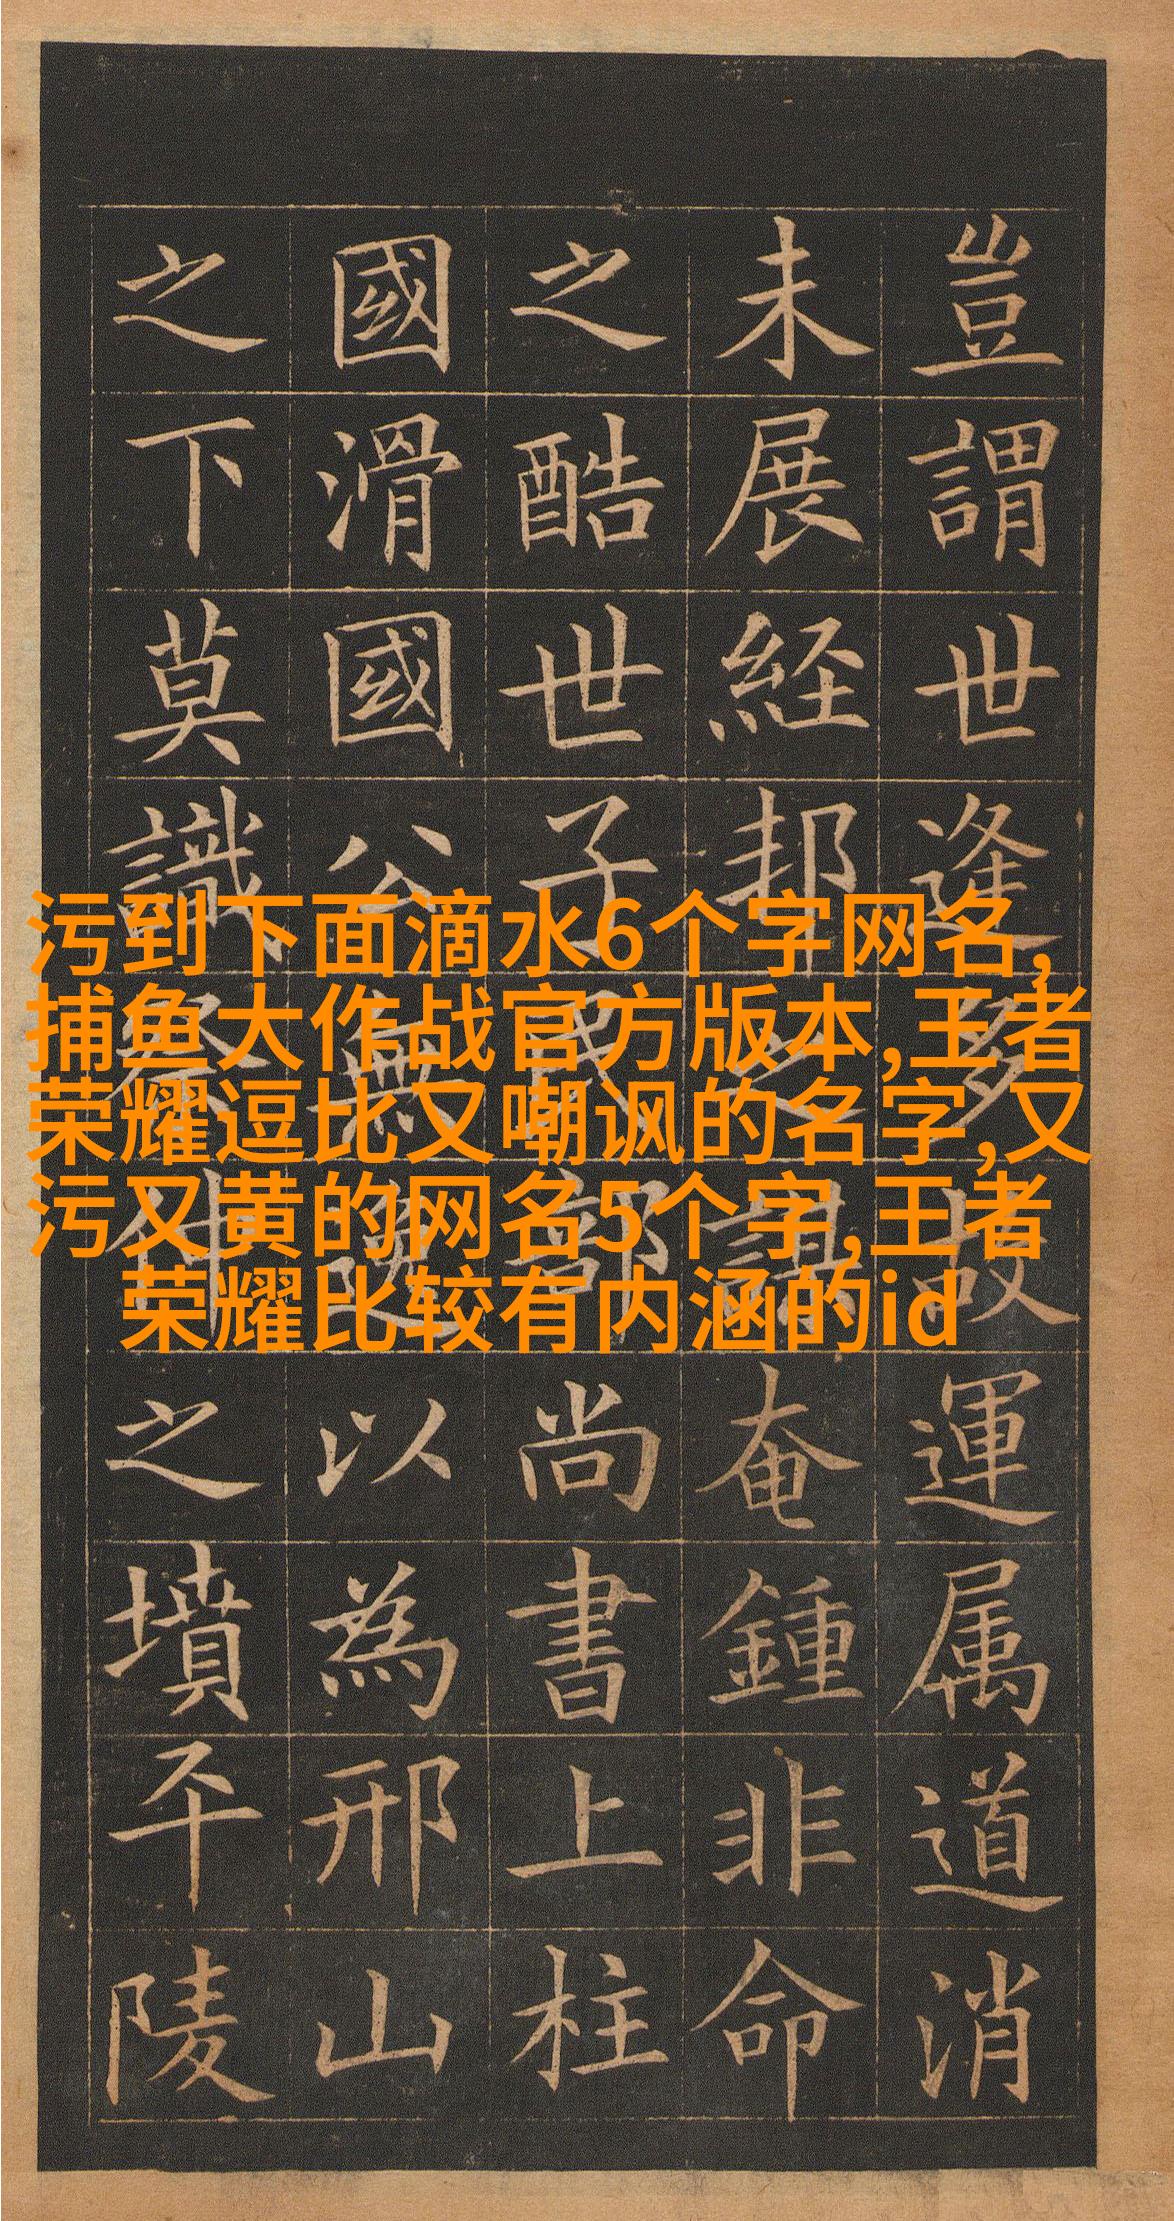 豈謂世逢多故運属道消
未展経邦之謀奄鍾非命
之酷世子民部尚書上柱
國滑國公無逸以為邢山
之下莫識祭仲之墳平陵
污到下面滴水6个字网名,
捕鱼大作战官方版本,王者
荣耀逗比又嘲讽的名字,又
污又黄的网名5个字,王者
荣耀比较有内涵的id